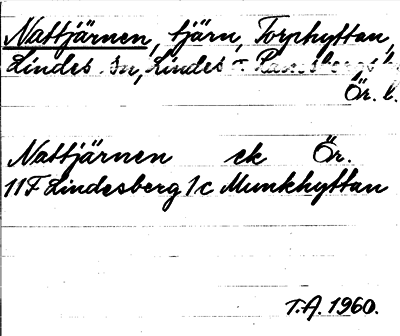 Nattjärnen, tjärn, Torphyttan,
Lindes sn, Lindes - Ramsbergs
Ör. l.
Nattjärnen ek Ör.
11F Lindesberg 1c Munkhyttan
T.A. 1960.